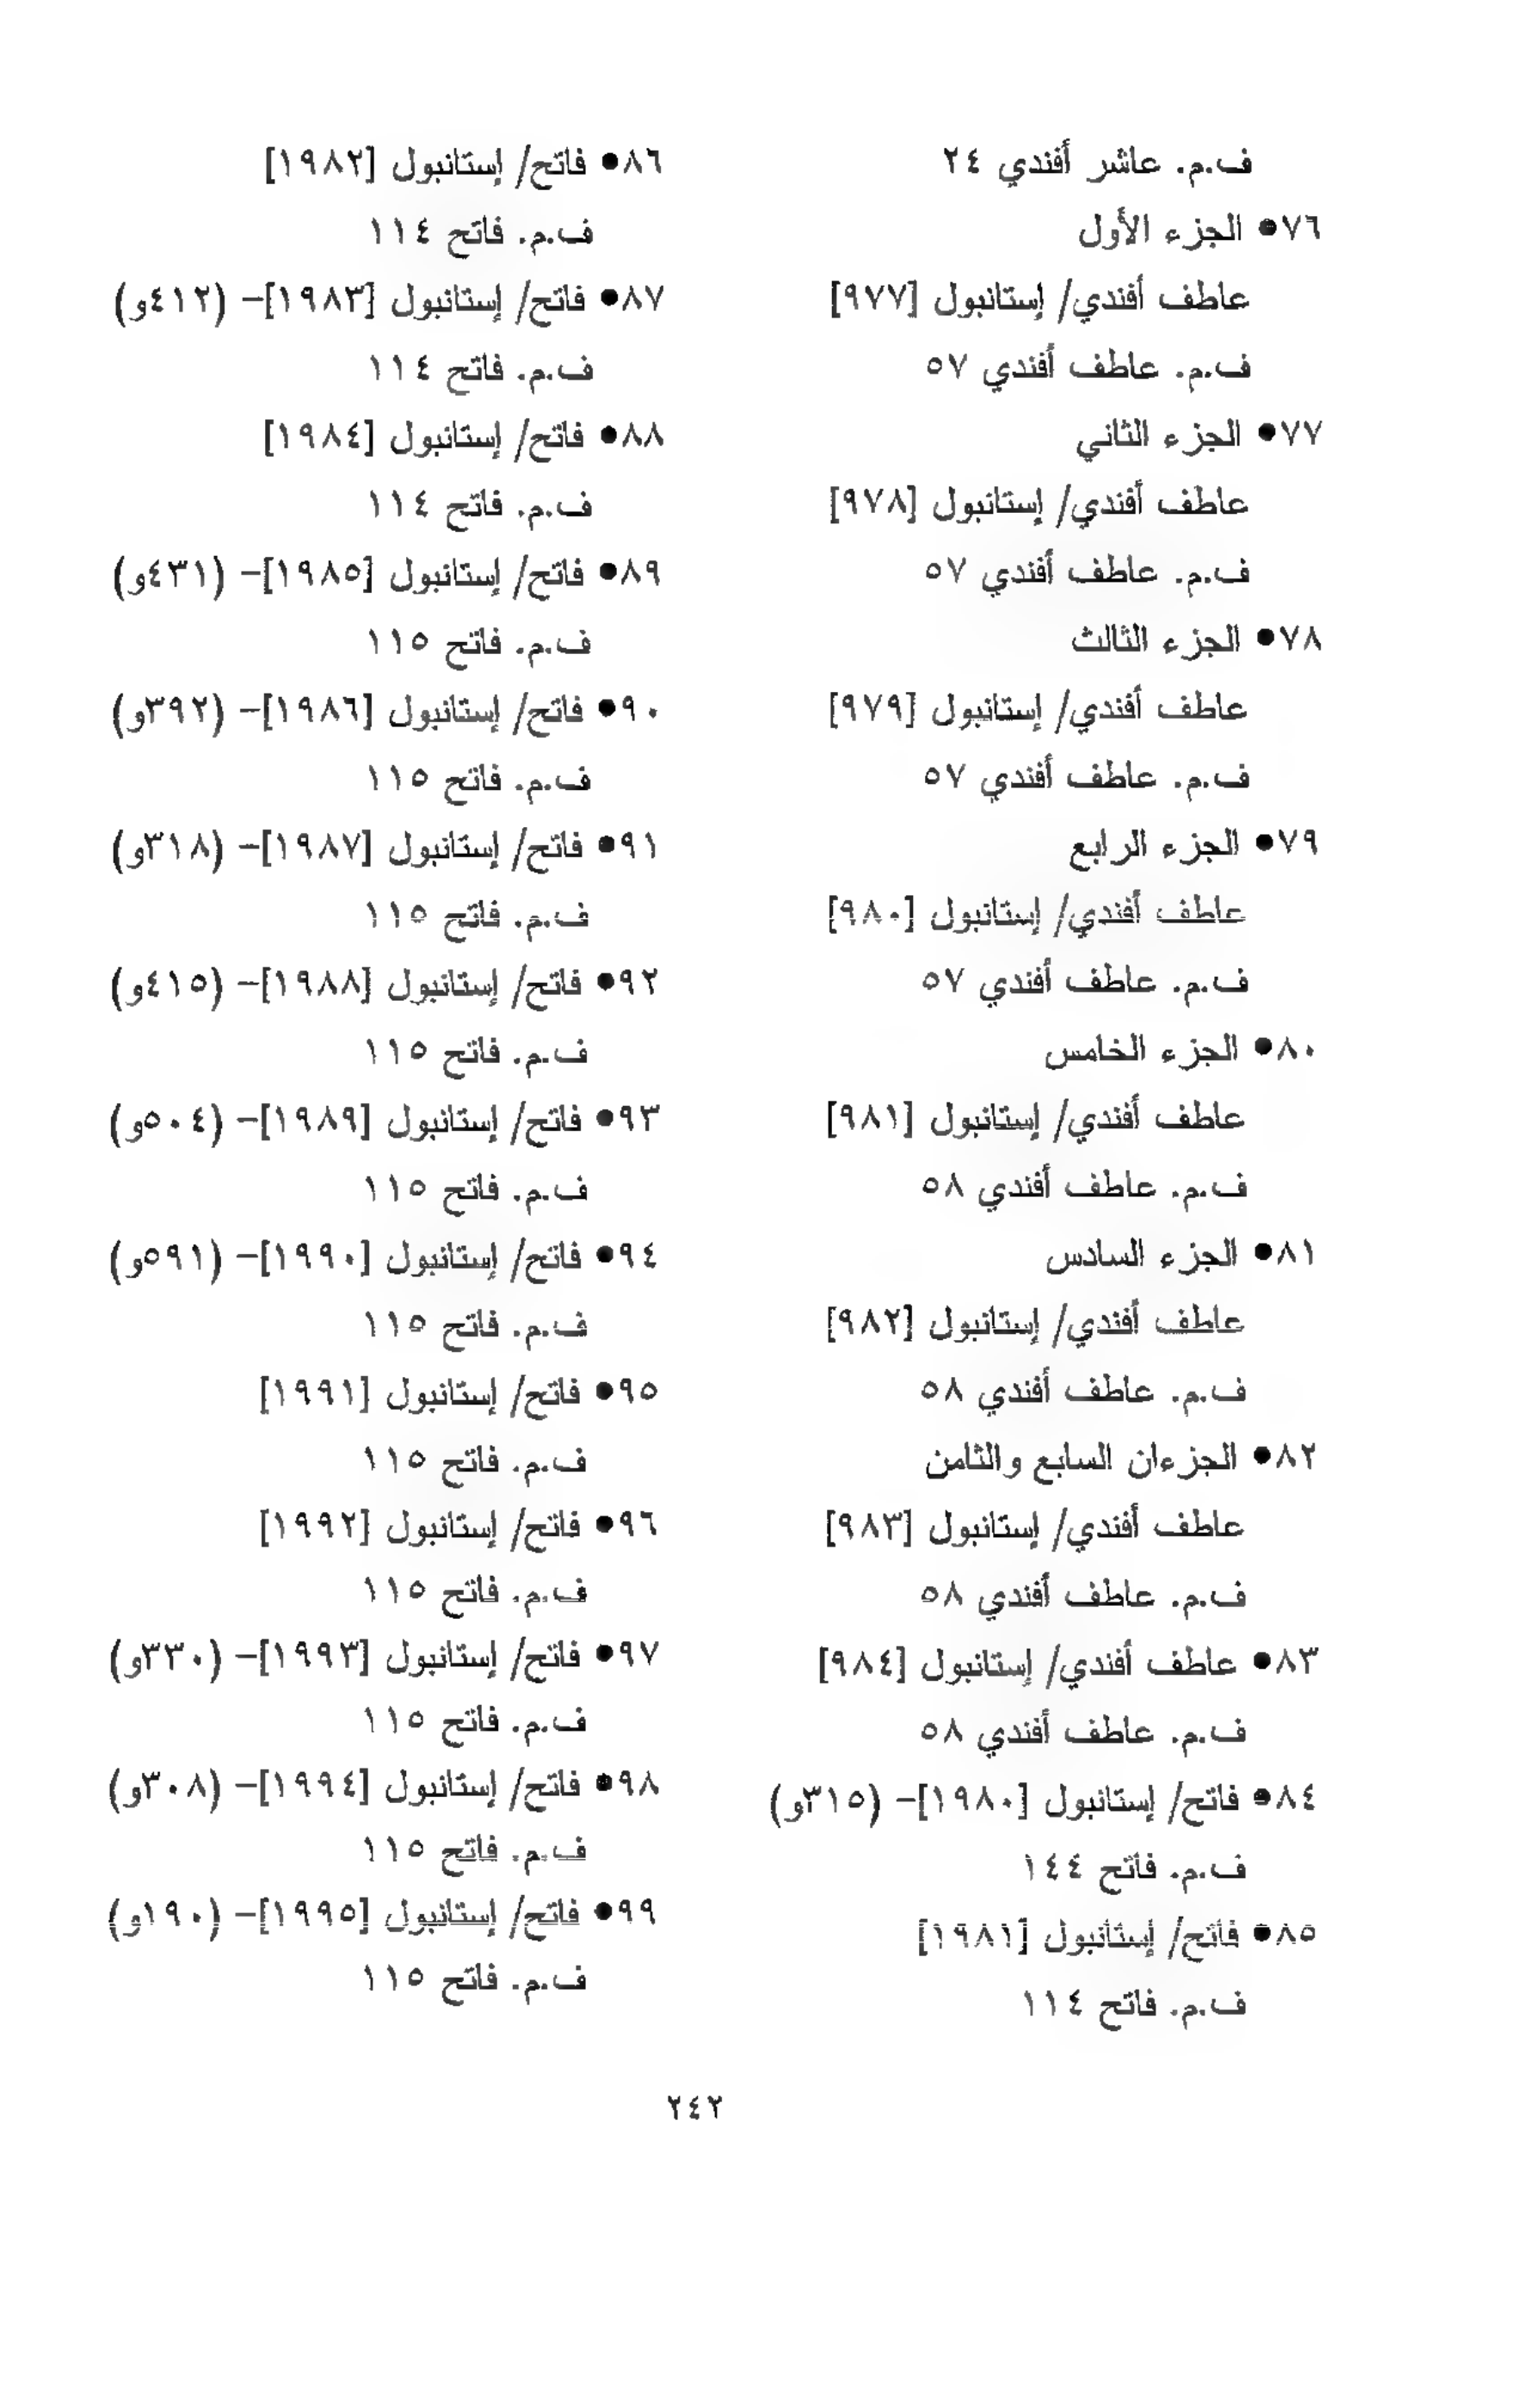 ف.م. عاشر أفندي ٢٤
٧٦● الجزء الأول
عاطف أفندي/ إستانبول [٩٧٧]
ف.م. عاطف أفندي ٥٧
٧٧● الجزء الثاني
عاطف أفندي/ إستانبول [٩٧٨]
ف.م. عاطف أفندي ٥٧
٧٨● الجزء الثالث
عاطف أفندي/ إستانبول [٩٧٩]
ف.م. عاطف أفندي ٥٧
٧٩● الجزء الرابع
عاطف أفندي/ إستانبول [٩٨٠]
ف.م. عاطف أفندي ٥٧
٨٠● الجزء الخامس
عاطف أفندي/ إستانبول [٩٨١]
ف.م. عاطف أفندي ٥٨
٨١● الجزء السادس
عاطف أفندي/ إستانبول [٩٨٢]
ف.م. عاطف أفندي ٥٨
٨٢● الجزءان السابع والثامن
عاطف أفندي/ إستانبول [٩٨٣]
ف.م. عاطف أفندي ٥٨
٨٣● عاطف أفندي/ إستانبول [٩٨٤]
ف.م. عاطف أفندي ٥٨
٨٤● فاتح/ إستانبول [١٩٨٠]- (٣١٥و)
ف.م. فاتح ١٤٤
٨٥● فاتح/ إستانبول [١٩٨١]
ف.م. فاتح ١١٤
٨٦● فاتح/ إستانبول [١٩٨٢]
ف.م. فاتح ١١٤
٨٧● فاتح/ إستانبول [١٩٨٣]- (٤١٢و)
ف.م. فاتح ١١٤
٨٨● فاتح/ إستانبول [١٩٨٤]
ف.م. فاتح ١١٤
٨٩● فاتح/ إستانبول [١٩٨٥]- (٤٣١و)
ف.م. فاتح ١١٥
٩٠● فاتح/ إستانبول [١٩٨٦]- (٣٩٢و)
ف.م. فاتح ١١٥
٩١● فاتح/ إستانبول [١٩٨٧]- (٣١٨و)
ف.م. فاتح ١١٥
٩٢● فاتح/ إستانبول [١٩٨٨]- (٤١٥و)
ف.م. فاتح ١١٥
٩٣● فاتح/ إستانبول [١٩٨٩]- (٥٠٤و)
ف.م. فاتح ١١٥
٩٤● فاتح/ إستانبول [١٩٩٠]- (٥٩١و)
ف.م. فاتح ١١٥
٩٥● فاتح/ إستانبول [١٩٩١]
ف.م. فاتح ١١٥
٩٦● فاتح/ إستانبول [١٩٩٢]
ف.م. فاتح ١١٥
٩٧● فاتح/ إستانبول [١٩٩٣]- (٣٣٠و)
ف.م. فاتح ١١٥
٩٨● فاتح/ إستانبول [١٩٩٤]- (٣٠٨و)
ف.م. فاتح ١١٥
٩٩● فاتح/ إستانبول [١٩٩٥]- (١٩٠و)
ف.م. فاتح ١١٥
٢٤٢